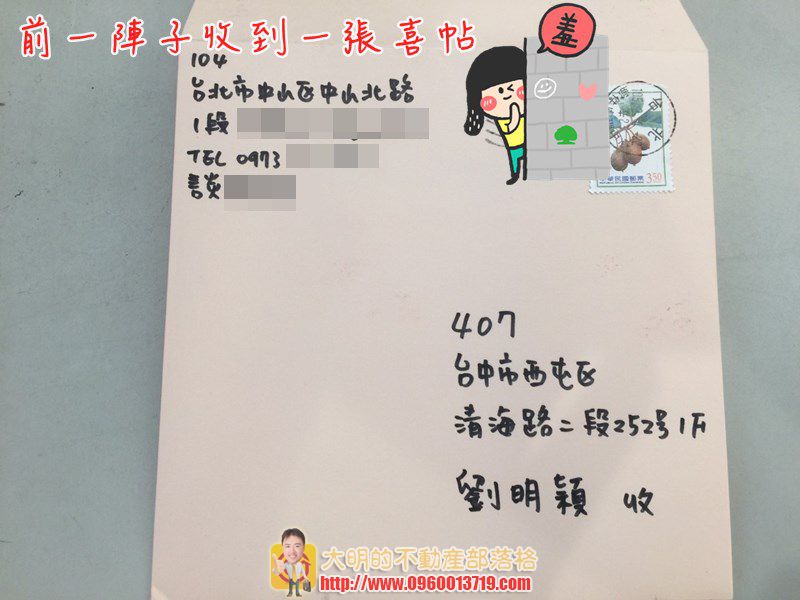 前一陣子收到一張喜帖
羞
104
台北市中山区中山北路
1段
TEL 0973
談
中華民國郵票
350
407
台中市西屯区
清海路二段252号1F
劉明穎 收
大明的不動產部落格
http://www.0960013719.com